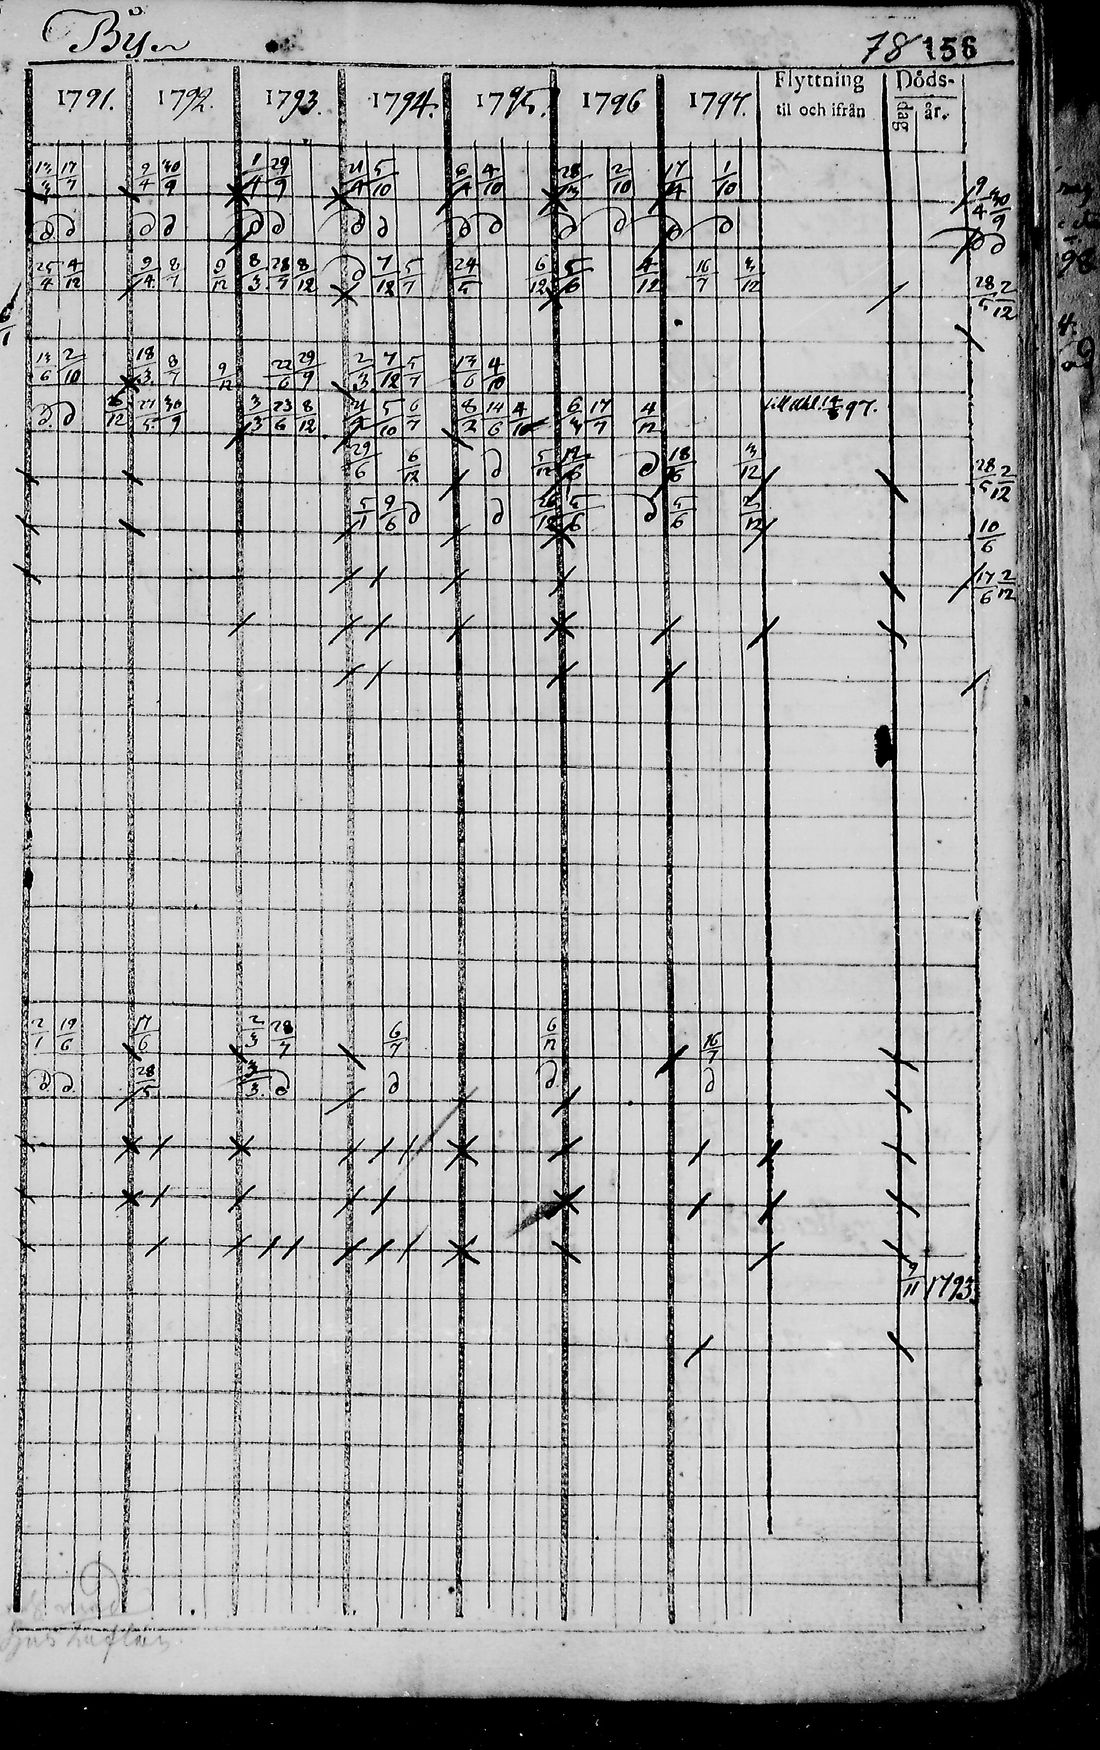 By
78 156
1791. 1792. 1793. 1794. 1795. 1796 1797. Flyttning til och ifrån Döds- dag år.
13/3 17/7 9/4 30/9 1/4 29/9 21/4 5/10 6/4 4/10 28/3 2/10 17/4 1/10 9/4 30/9
d d d d d d d d d d d d d d d d
25/4 4/12 9/4 8/7 9/12 8/3 28/7 8/12 d 7/12 5/7 24/5 6/12 5/6 4/12 16/7 3/12 28/5 2/12
13/6 2/10 18/3 8/7 9/12 22/6 29/9 2/3 7/12 5/7 13/6 4/10
d d 27/5 30/9 3/3 23/6 8/12 5/10 6/7 8/2 14/6 4/10 17/7 4/12 97.
29/6 6/12 d 5/12 12/6 d 18/6 3/12 28/5 2/12
5/1 9/6 d d 5/6 d 5/6 10/6
17/6 2/12
2/1 19/6 17/6 2/3 28/7 6/7 6/12 16/7
d d 28/5 3/3 d d d d
9/11 1793.